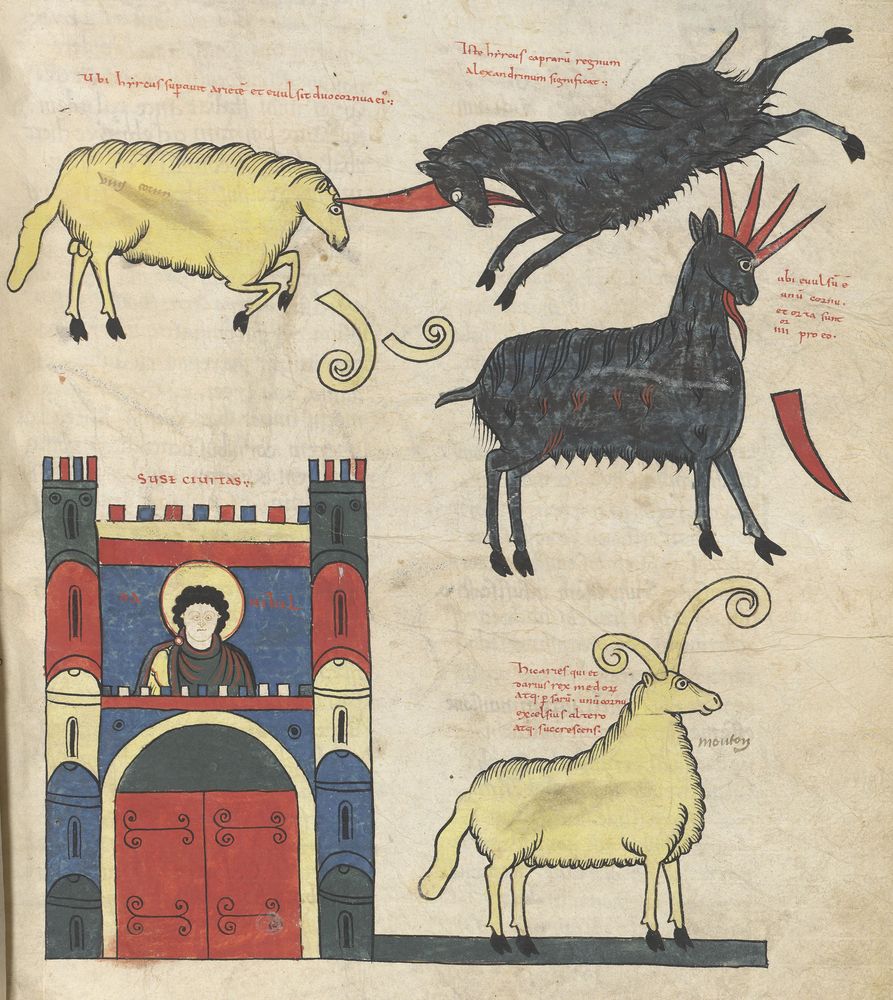 Ubi hyrcus sup̄auit arietē et euulsit duo cornua eiꝰ:·
Iste hyrcus caprarū regnum
alexandrinum significat:·
ubi euulsū ē
unū cornu.
et orta sunt
or
IIII pro eo.
SUSE CIUITAS:·
hic aries qui et
darius rex medoꝝ
Atq. ꝑsarū. unū cornu
excelsius altero
Atq. succrescens.
mouton